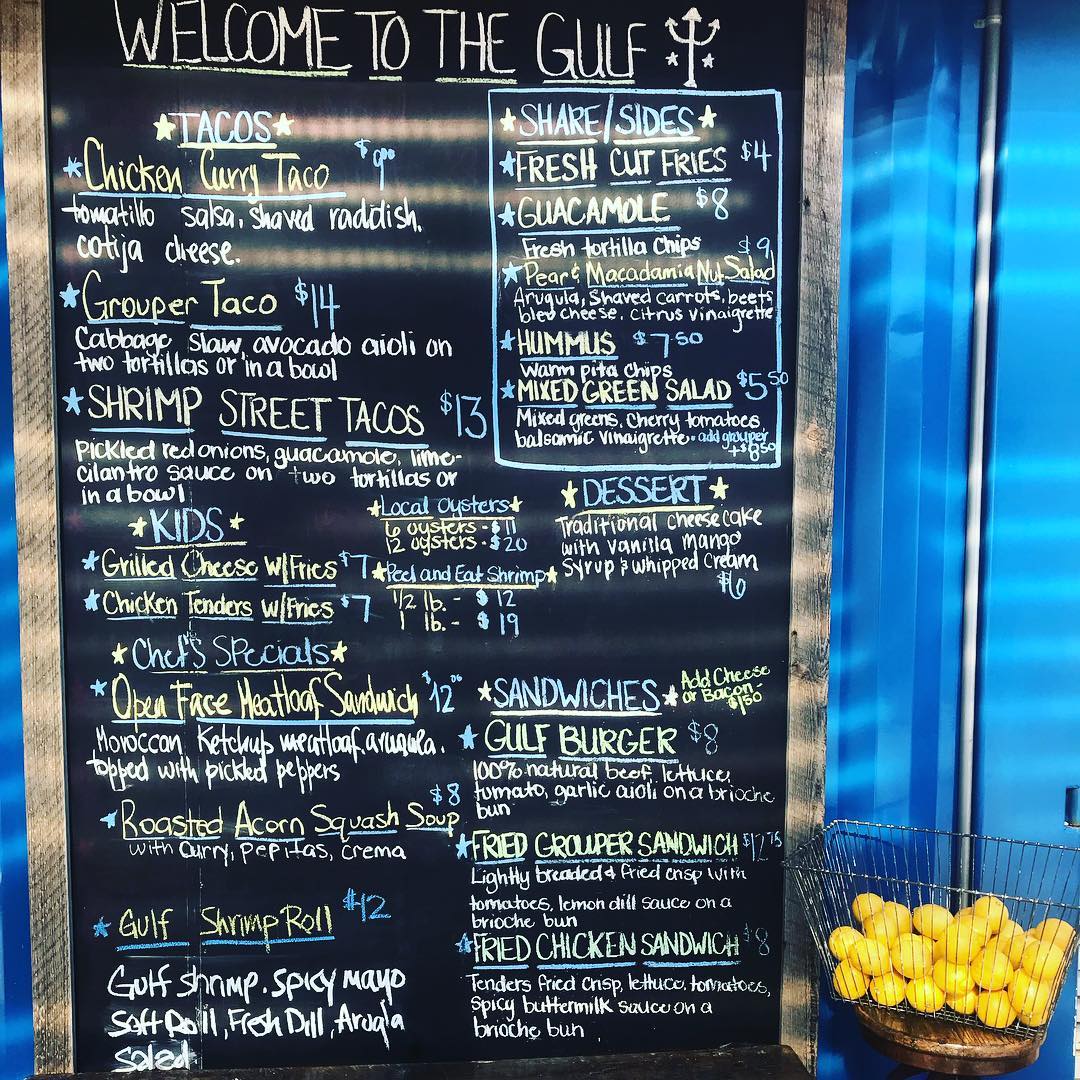 WELCOME TO THE GULF
TACOS
Chicken Curry Taco $9⁰⁰
tomatillo salsa, shaved raddish,
cotija cheese.
Grouper Taco $14
Cabbage slaw, avocado aioli on
two tortillas or in a bowl
SHRIMP STREET TACOS $13
pickled red onions, guacamole, lime-
cilantro sauce on two tortillas or
in a bowl
SHARE/SIDES
FRESH CUT FRIES $4
GUACAMOLE $8
Fresh tortilla chips
Pear & Macadamia Nut Salad $9
Arugula, shaved carrots, beets
bleu cheese, citrus vinaigrette
HUMMUS $7⁵⁰
Warm pita chips
MIXED GREEN SALAD $5⁵⁰
Mixed greens, cherry tomatoes
balsamic vinaigrette · add grouper
+$8⁵⁰
KIDS
Grilled Cheese w/Fries $7
Chicken Tenders w/Fries $7
Local Oysters
6 oysters - $11
12 oysters - $20
Peel and Eat Shrimp
1/2 lb. - $12
1 lb. - $19
DESSERT
Traditional cheesecake
with vanilla mango
syrup & whipped cream
$6
Chef's Specials
Open Face Meatloaf Sandwich $12⁰⁰
Moroccan Ketchup meatloaf, arugula.
topped with pickled peppers
Roasted Acorn Squash Soup $8
with curry, pepitas, crema
Gulf Shrimp Roll $12
Gulf shrimp, spicy mayo
Soft Roll, Fresh Dill, Arugla
Salad
SANDWICHES
Add Cheese
or Bacon -
$1⁵⁰
GULF BURGER $8
100% natural beef, lettuce,
tomato, garlic aioli on a brioche
bun
FRIED GROUPER SANDWICH $12⁷⁵
Lightly breaded & fried crisp with
tomatoes, lemon dill sauce on a
brioche bun
FRIED CHICKEN SANDWICH $8
Tenders fried crisp, lettuce, tomatoes,
spicy buttermilk sauce on a
brioche bun